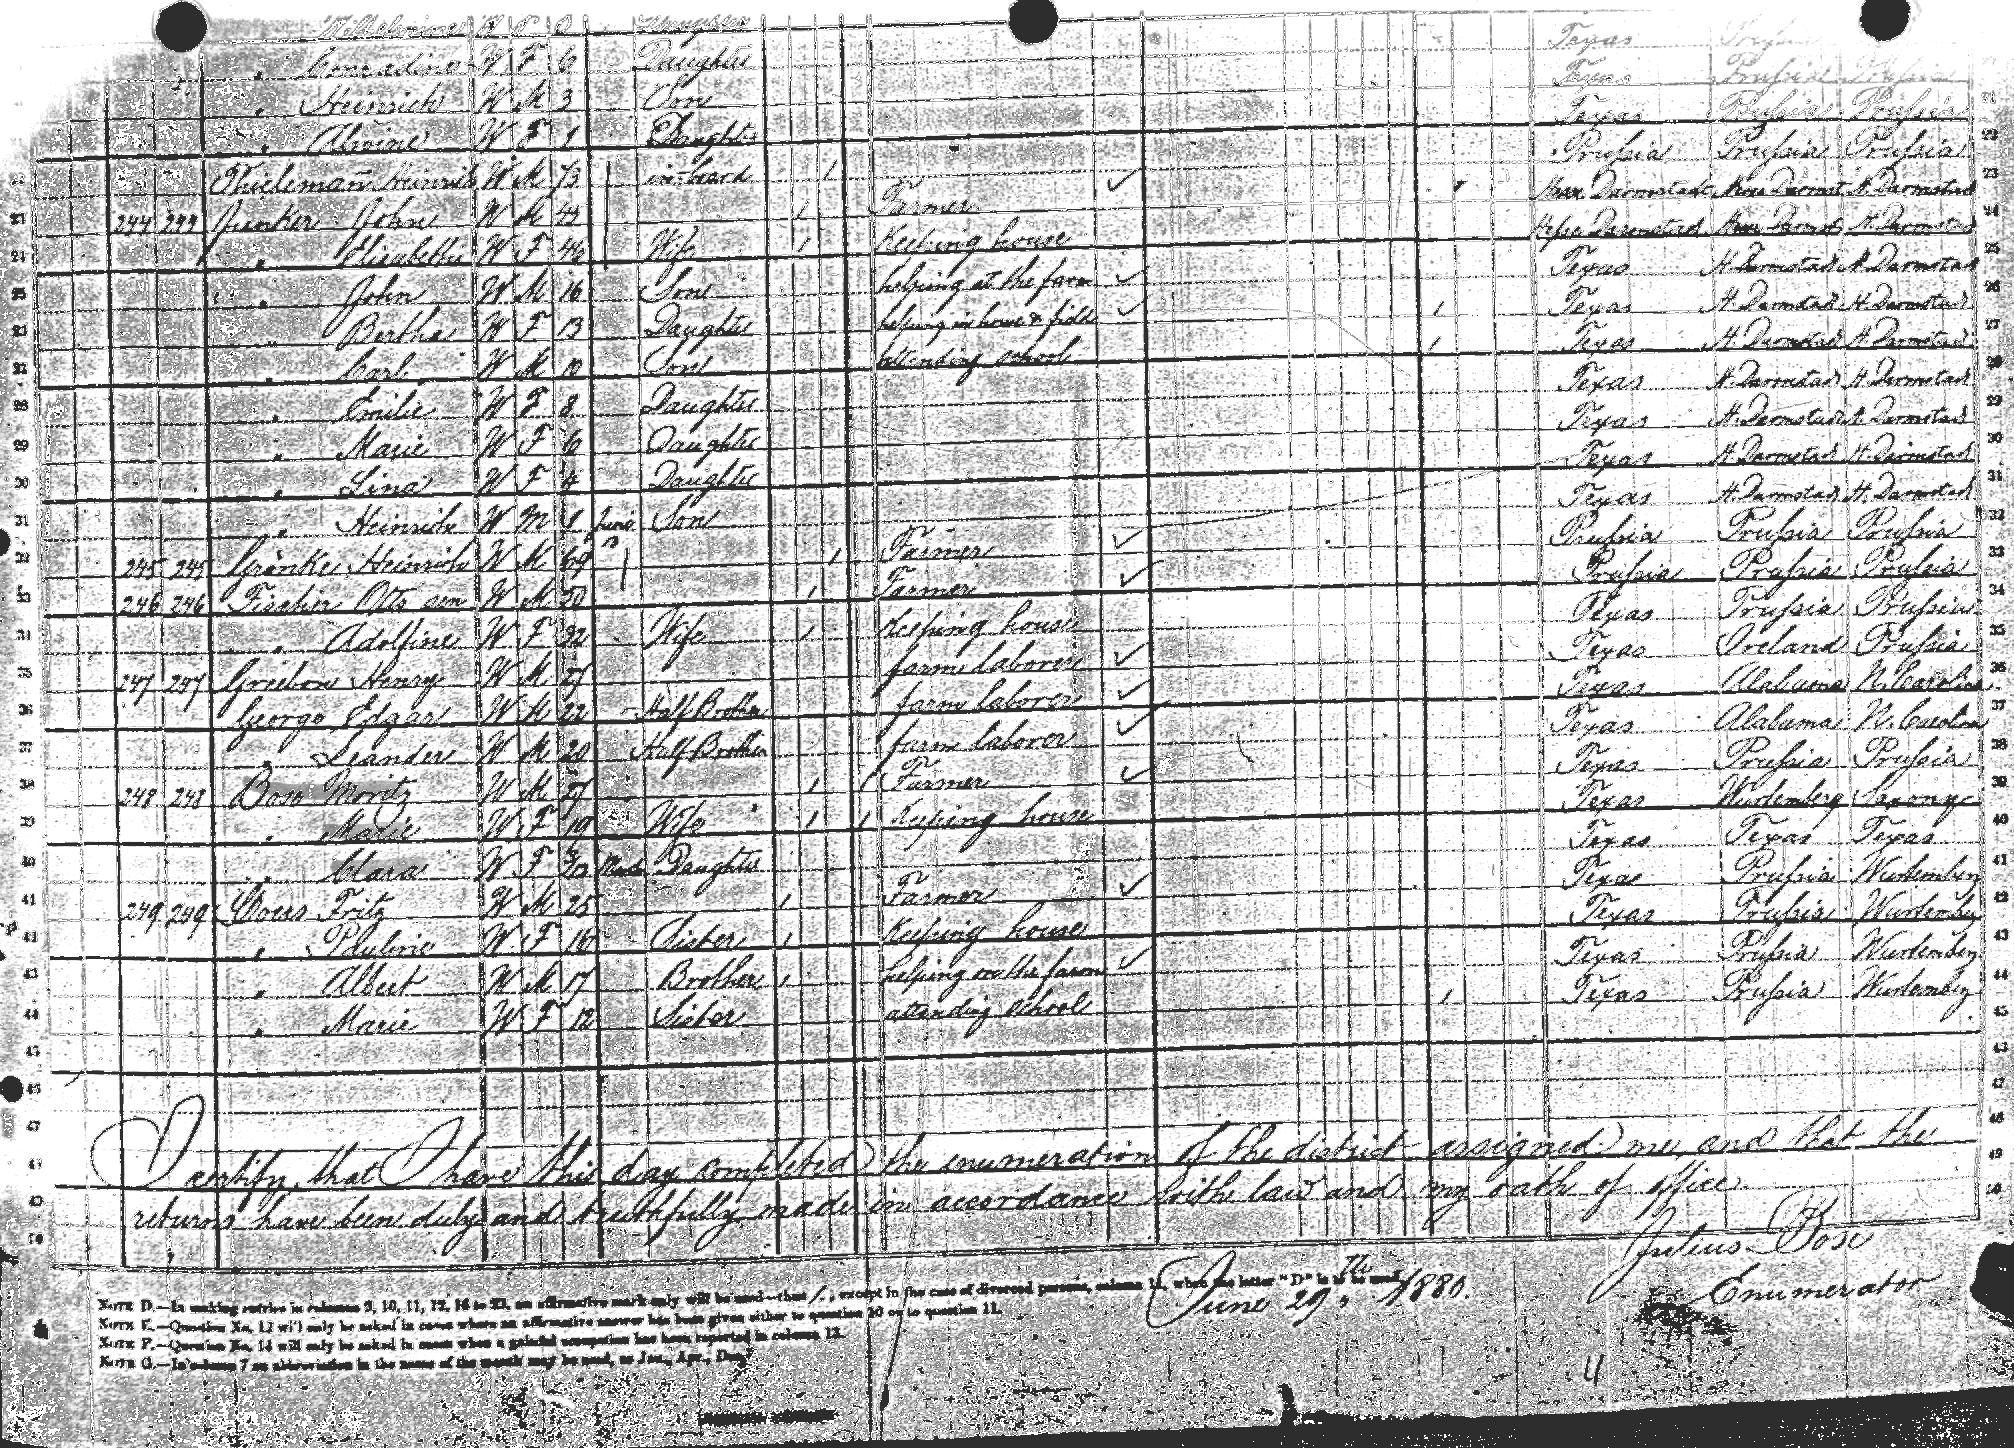 Wilhelmine W F 8 Daughter Texas
" Conradine W F 6 Daughter Texas Prussia Prussia
" Heinrich W M 3 Son Texas Prussia Prussia
" Alwine W F 1 Daughter Prussia Prussia Prussia
Thieleman Heinrich W M 73 in board
244 244 Junker John W M 44 Farmer Hesse Darmstadt Hesse Darmst H. Darmstad
" Elisabethe W F 40 Wife Keeping house Hesse Darmstad Hesse Darmst H. Darmstad
" John W M 16 Son helping at the farm Texas H. Darmstad H. Darmstad
" Bertha W F 13 Daughter helping in house & field Texas H. Darmstad H. Darmstad
" Carl W M 10 Son attending school Texas H. Darmstad H. Darmstad
" Emilie W F 8 Daughter Texas H. Darmstad H. Darmstad
" Marie W F 6 Daughter Texas H. Darmstad H. Darmstad
" Lina W F 4 Daughter Texas H. Darmstad H. Darmstad
" Heinrich W M 1 Son Texas H. Darmstad H. Darmstad
245 245 Heinrich W M 69 Farmer Prussia Prussia Prussia
246 246 Fischer Otto sen W M 50 Farmer Prussia Prussia Prussia
" Adolfine W F 32 Wife Keeping house Texas Prussia Prussia
247 247 Henry W M 27 farm laborer Texas Ireland Prussia
George Edgar W M 22 Half Brother farm laborer Texas Alabama N. Carolina
" Leander W M 20 Half Brother farm laborer Texas Alabama N. Carolina
248 248 Bose Moritz W M 27 Farmer Texas Prussia Prussia
" Marie W F 19 Wife Keeping house Texas Wurtemberg Saxony
" Clara W F 3/12 March Daughter Texas Texas Texas
249 249 Fritz W M 25 Farmer Texas Prussia Wurtemberg
" W F 16 Sister Keeping house Texas Prussia Wurtemberg
" Albert W M 17 Brother helping on the farm Texas Prussia Wurtemberg
" Marie W F 12 Sister attending school Texas Prussia Wurtemberg
I certify, that I have this day completed the enumeration of the district assigned me, and that the
returns have been duly and truthfully made in accordance with law and my oath of office.
Julius Bose
Enumerator
June 29th, 1880.
NOTE D.—In making entries in columns 9, 10, 11, 12, 16 to 23, an affirmative mark only will be used—thus /, except in the case of divorced persons, column 11, when the letter "D" is to be used.
NOTE E.—Question No. 12 will only be asked in cases where an affirmative answer has been given either to question 10 or to question 11.
NOTE F.—Question No. 14 will only be asked in cases when a gainful occupation has been reported in column 13.
NOTE G.—In column 7 an abbreviation in the name of the month may be used, as Jan., Apr., Dec.